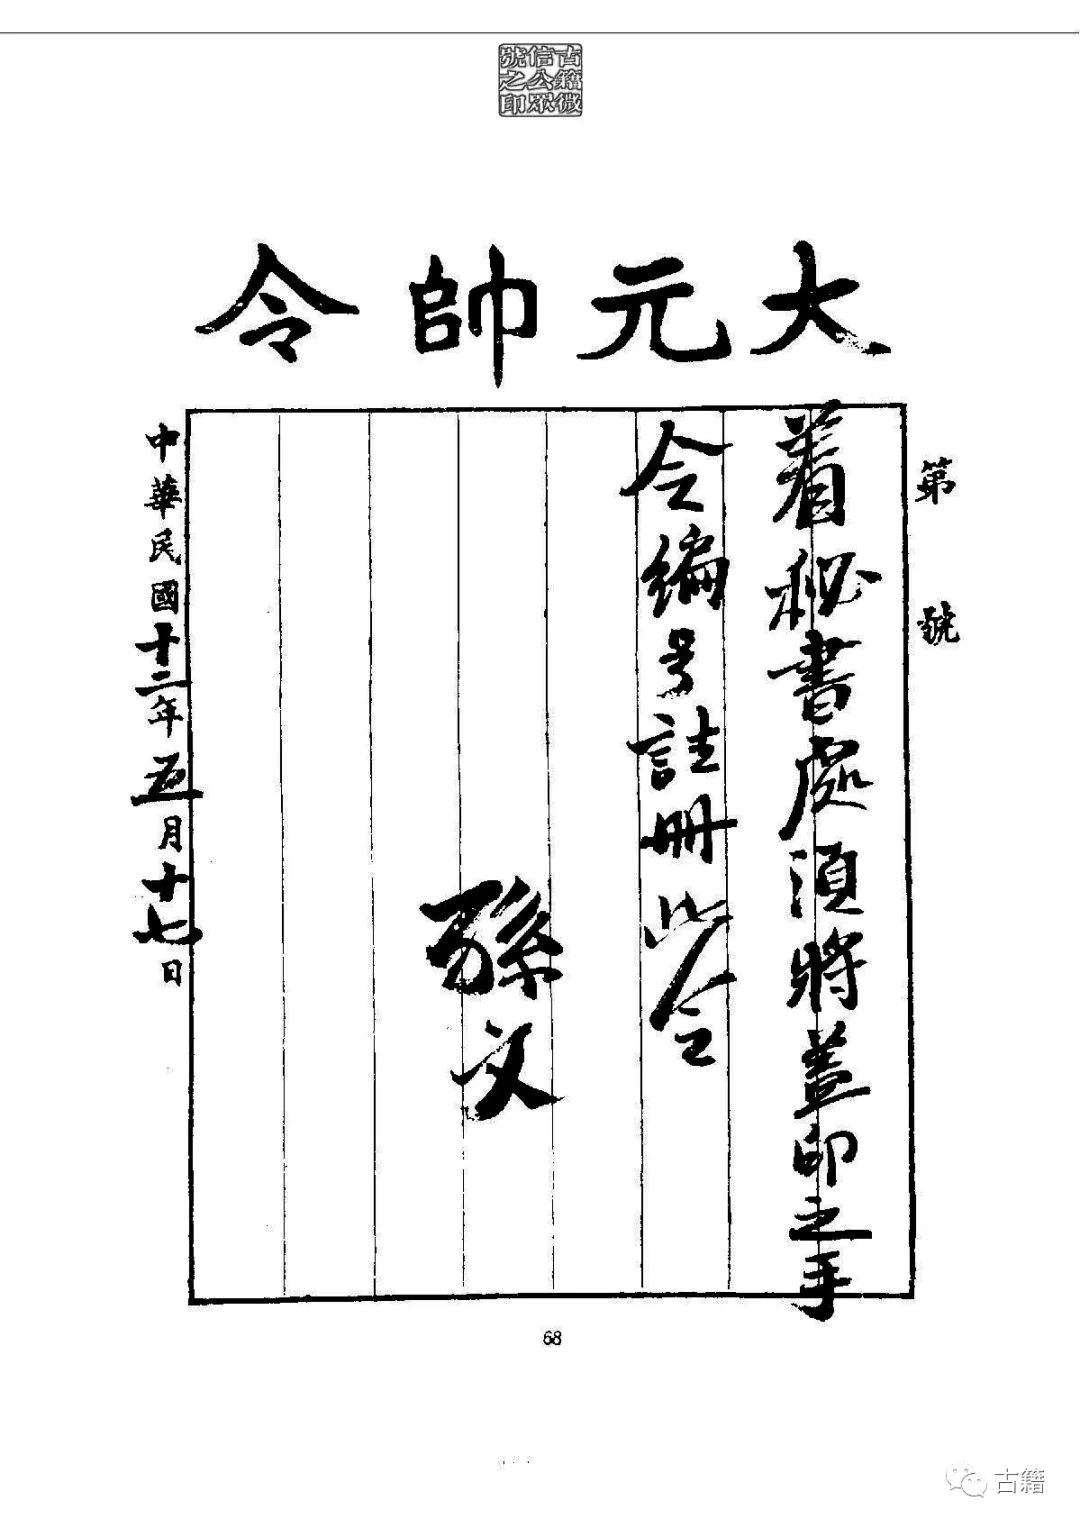 古籍微
信公眾
號之印
大元帥令
第 號
着秘書處須將蓋印之手
令編号註冊此令
孫文
中華民國十二年五月十七日
68
古籍